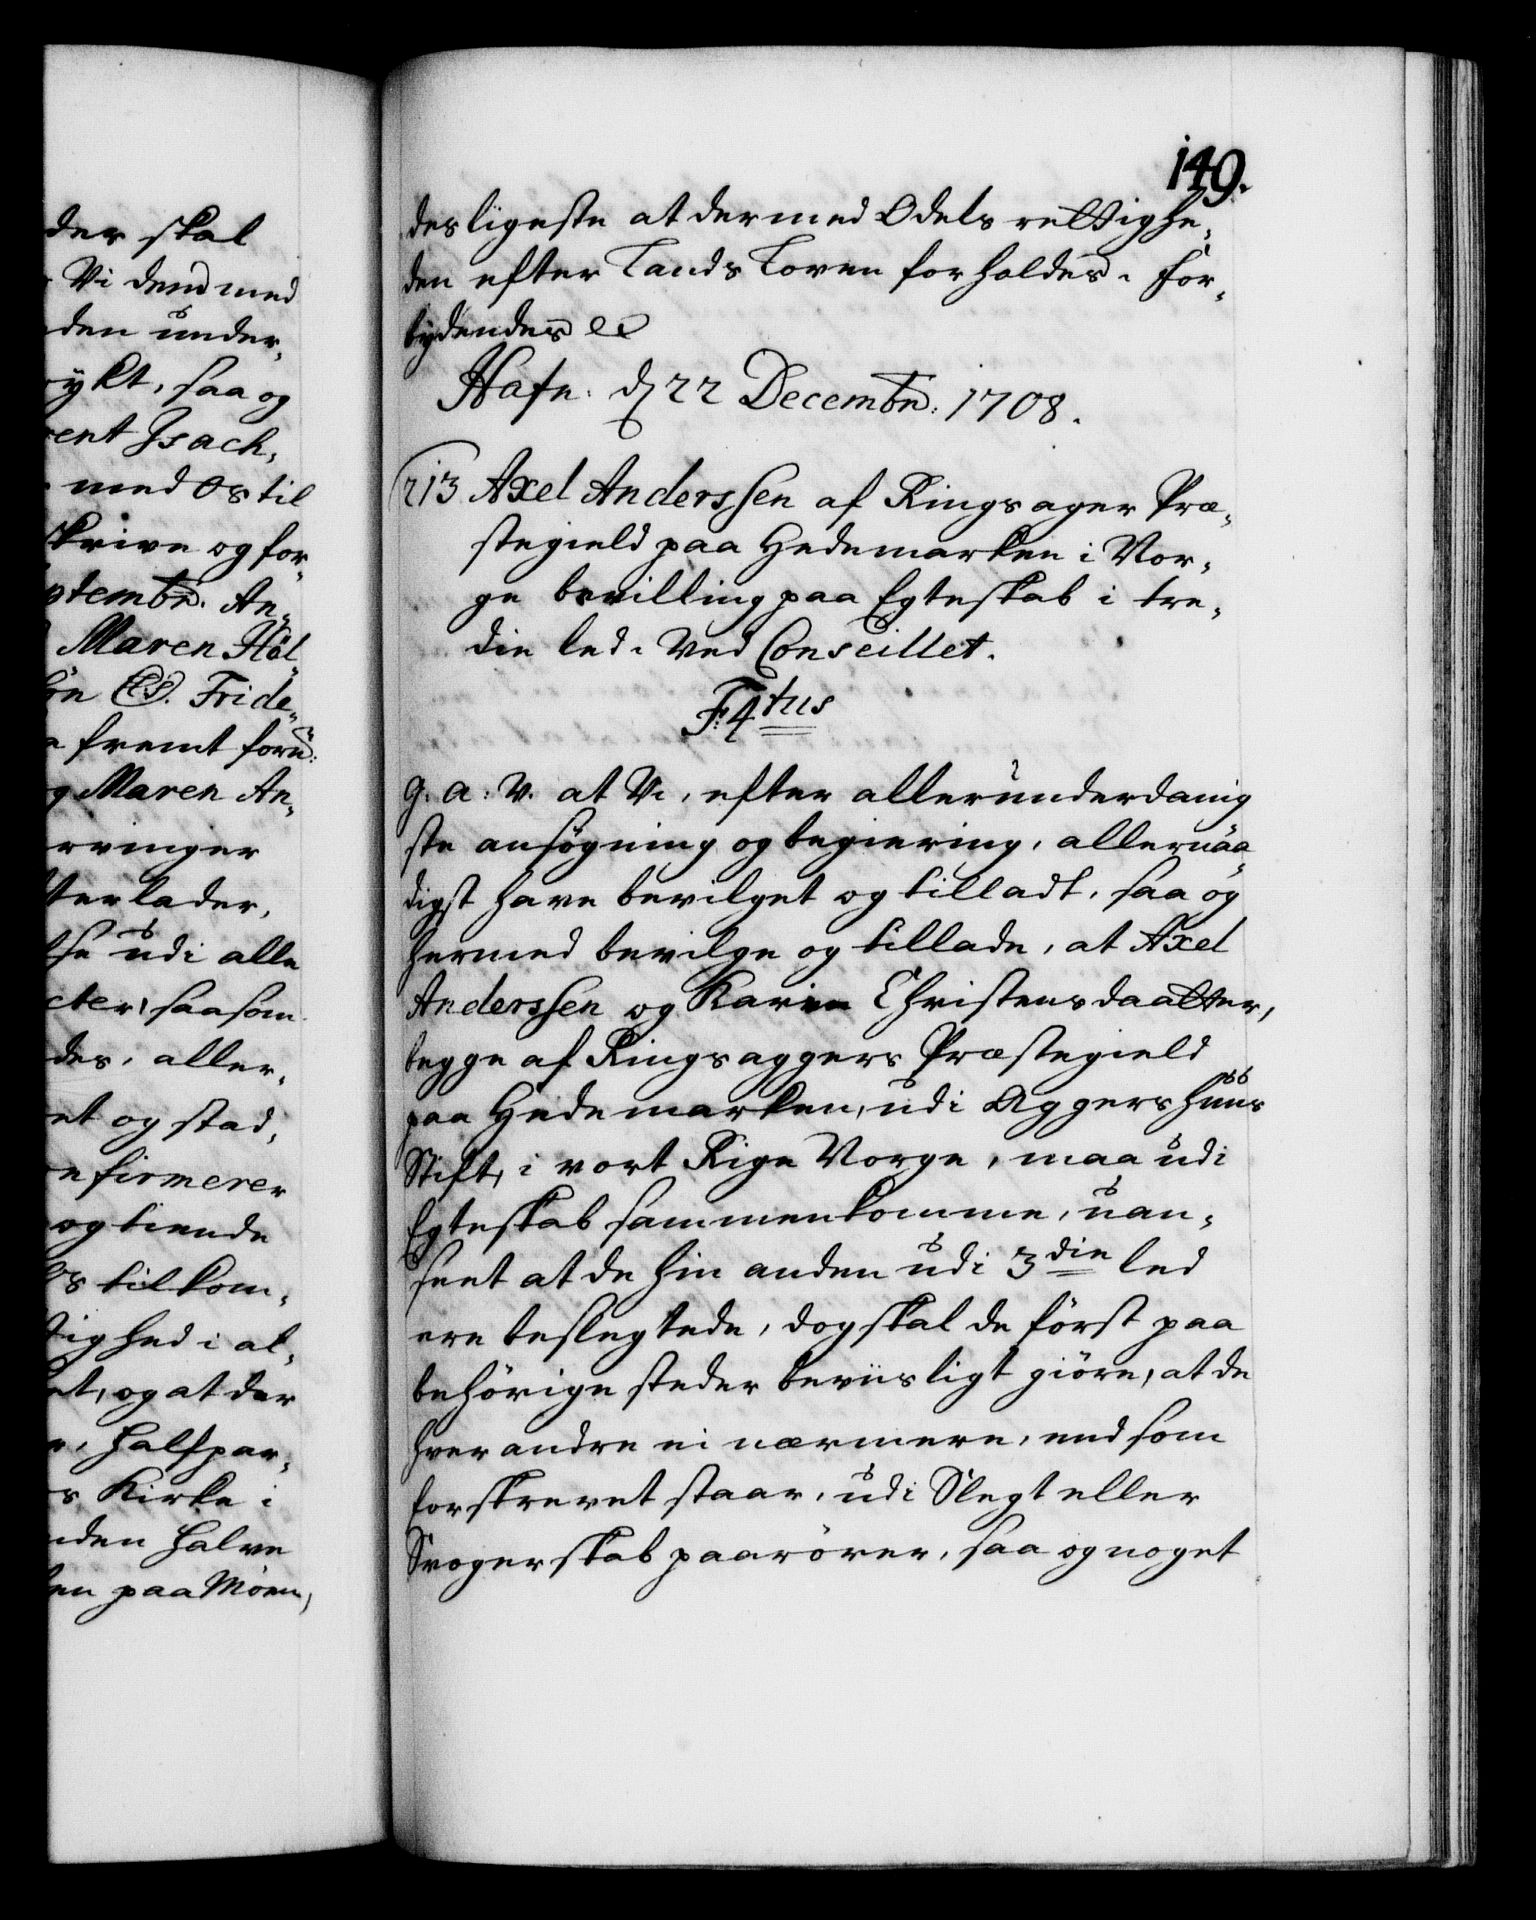 149.
der skal
Vi dend med
den under,
ykt, saa og
rent Jsach,
med Os til
skrive og for,
ptembr. An,
Maren Höl,
Fride,
fremt forn:
og Maren An,
rvinger
terlader,
udi alle
cter, saasom
des, aller,
et og stad,
nfirmerer
og tiende
Os tilkom,
tighed i al,
et, og at der
halfpar,
s Kirke i
nden halve
en paa Möen,
desligeste at dermed Odels rettighe,
den efter Lands Loven forholdes. For,
bydendes etc
Hafn: d 22 Decembr: 1708.
213 Axel Anderssen af Ringsager Præ,
stegield paa Hedemarken i Nor,
ge bevilling paa Egteskab i tre,
die led. Ved Conseillet.
F: 4tus
G. A: V. at Vi, efter allerunderdanig
ste ansøgning og begiering, allernaa,
digst have bevilget og tilladt, saa og
hermed bevilge og tillade, at Axel
Anderssen og Karin Christensdaatter,
begge af Ringsaggers Præstegield
paa Hedemarken, udi Aggershuus
Stift, i vort Rige Norge, maa udi
Egteskab sammenkomme, uan,
seet at de hin anden udi 3die led
ere beslegtede, dog skal de först paa
behörige steder beviisligt giöre, at de
hverandre ei nærmere, end som
forskrevet staar, udi Slegt eller
Svogerskab paarörer, saa og noget